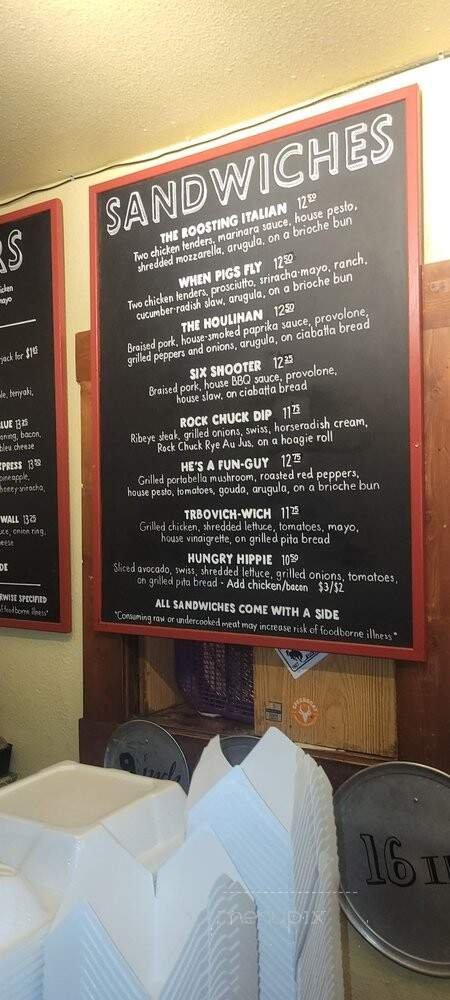 SANDWICHES
THE ROOSTING ITALIAN 12⁵⁰
Two chicken tenders, marinara sauce, house pesto,
shredded mozzarella, arugula, on a brioche bun
WHEN PIGS FLY 12⁵⁰
Two chicken tenders, prosciutto, sriracha-mayo, ranch,
cucumber-radish slaw, arugula, on a brioche bun
THE HOULIHAN 12⁵⁰
Braised pork, house-smoked paprika sauce, provolone,
grilled peppers and onions, arugula, on ciabatta bread
SIX SHOOTER 12²⁵
Braised pork, house BBQ sauce, provolone,
house slaw, on ciabatta bread
ROCK CHUCK DIP 11⁷⁵
Ribeye steak, grilled onions, swiss, horseradish cream,
Rock Chuck Rye Au Jus, on a hoagie roll
HE'S A FUN-GUY 12⁷⁵
Grilled portabella mushroom, roasted red peppers,
house pesto, tomatoes, gouda, arugula, on a brioche bun
TRBOVICH-WICH 11⁷⁵
Grilled chicken, shredded lettuce, tomatoes, mayo,
house vinaigrette, on grilled pita bread
HUNGRY HIPPIE 10⁵⁰
Sliced avocado, swiss, shredded lettuce, grilled onions, tomatoes,
on grilled pita bread - Add chicken/bacon $3/$2
ALL SANDWICHES COME WITH A SIDE
*Consuming raw or undercooked meat may increase risk of foodborne illness*
RS
chicken
mayo
jack for $1
teriyaki,
LUE 13²⁵
bacon,
bleu cheese
XPRESS 13⁵⁰
pineapple,
honey-sriracha,
WALL 13²⁵
onion ring,
cheese
DE
RWISE SPECIFIED
of foodborne illness*
16 I
menupix